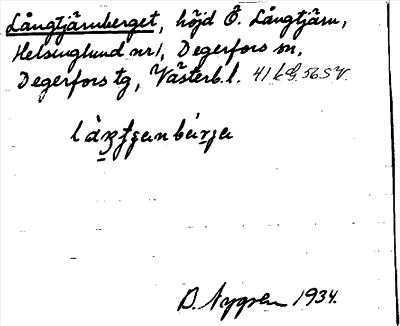 Långtjärnberget, höjd Ö. Långtjärn,
Helsinglund nr 1, Degerfors sn,
Degerfors tg, Västerb. l. 
B. Nygren 1934.